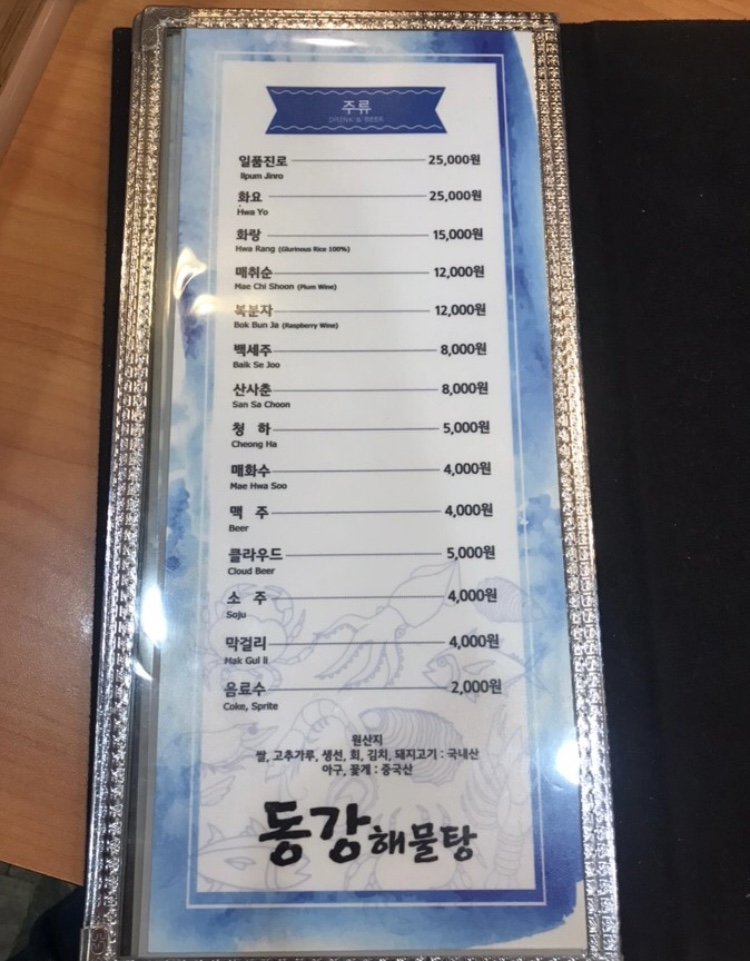 주류
DRINK & BEER
일품진로 25,000원
Ilpum Jinro
화요 25,000원
Hwa Yo
화랑 15,000원
Hwa Rang (Glurinous Rice 100%)
매취순 12,000원
Mae Chi Shoon (Plum Wine)
복분자 12,000원
Bok Bun Ja (Raspberry Wine)
백세주 8,000원
Baik Se Joo
산사춘 8,000원
San Sa Choon
청 하 5,000원
Cheong Ha
매화수 4,000원
Mae Hwa Soo
맥 주 4,000원
Beer
클라우드 5,000원
Cloud Beer
소 주 4,000원
Soju
막걸리 4,000원
Mak Gul li
음료수 2,000원
Coke, Sprite
원산지
쌀, 고추가루, 생선, 회, 김치, 돼지고기 : 국내산
아구, 꽃게 : 중국산
동강해물탕